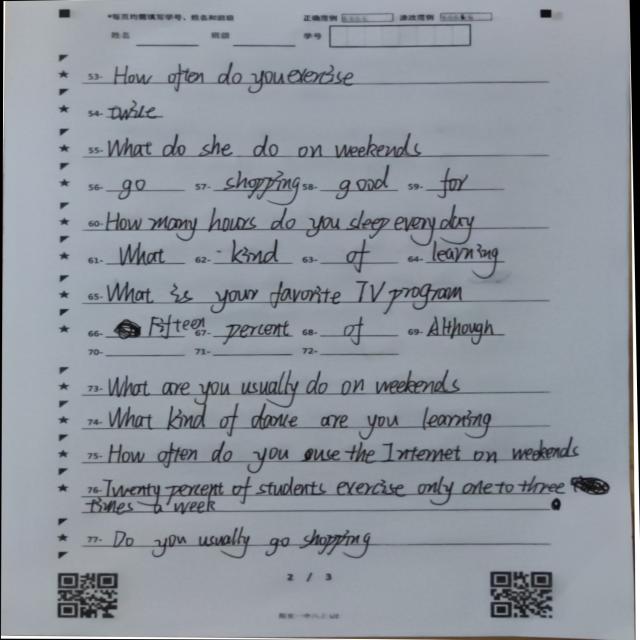 *每页均需填写学号、姓名和班级 正确范例 涂改范例
姓名 班级 学号
53. How often do you exercise
54. twice
55. What do she do on weekends
56. go 57. shopping 58. good 59. for
60. How many hours do you sleep every day
61. What 62. kind 63. of 64. learning
65. What is your favorite TV program
66. Fifteen 67. percent 68. of 69. Although
70. 71. 72.
73. What are you usually do on weekends
74. What kind of dance are you learning
75. How often do you use the Internet on weekends
76. Twenty percent of students exercise only one to three
times a week
77. Do you usually go shopping
2 / 3